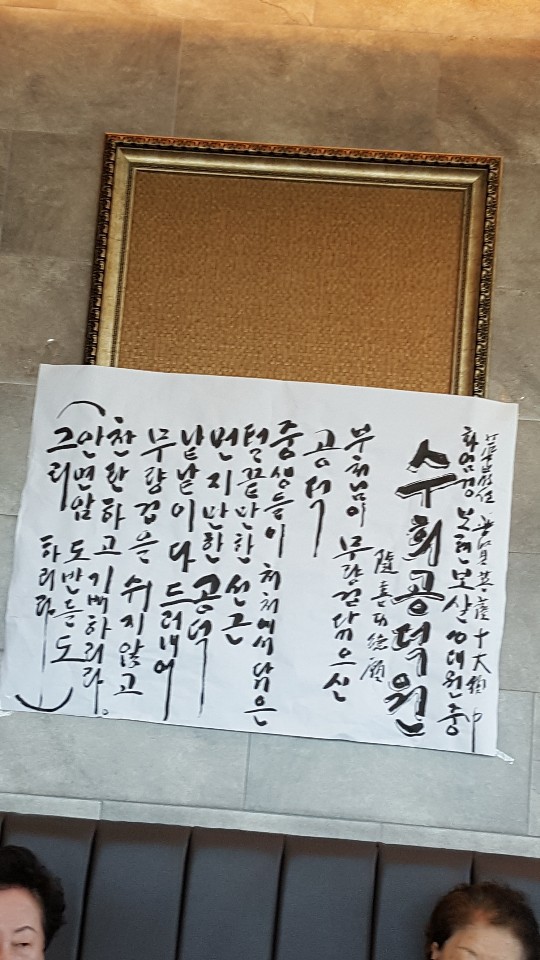 普賢菩薩十大願 中
화엄경 보현보살 10대원 중
수희공덕원
隨喜功德願
부처님이 무량겁 닦으신
공덕
중생들이 처처에서 닦은
털끝만한 선근
먼지만한 공덕
낱낱이 다 드러내어
무량겁을 쉬지않고
찬탄하고 기뻐하리라.
(안면암 도반들도
그리 하리라)